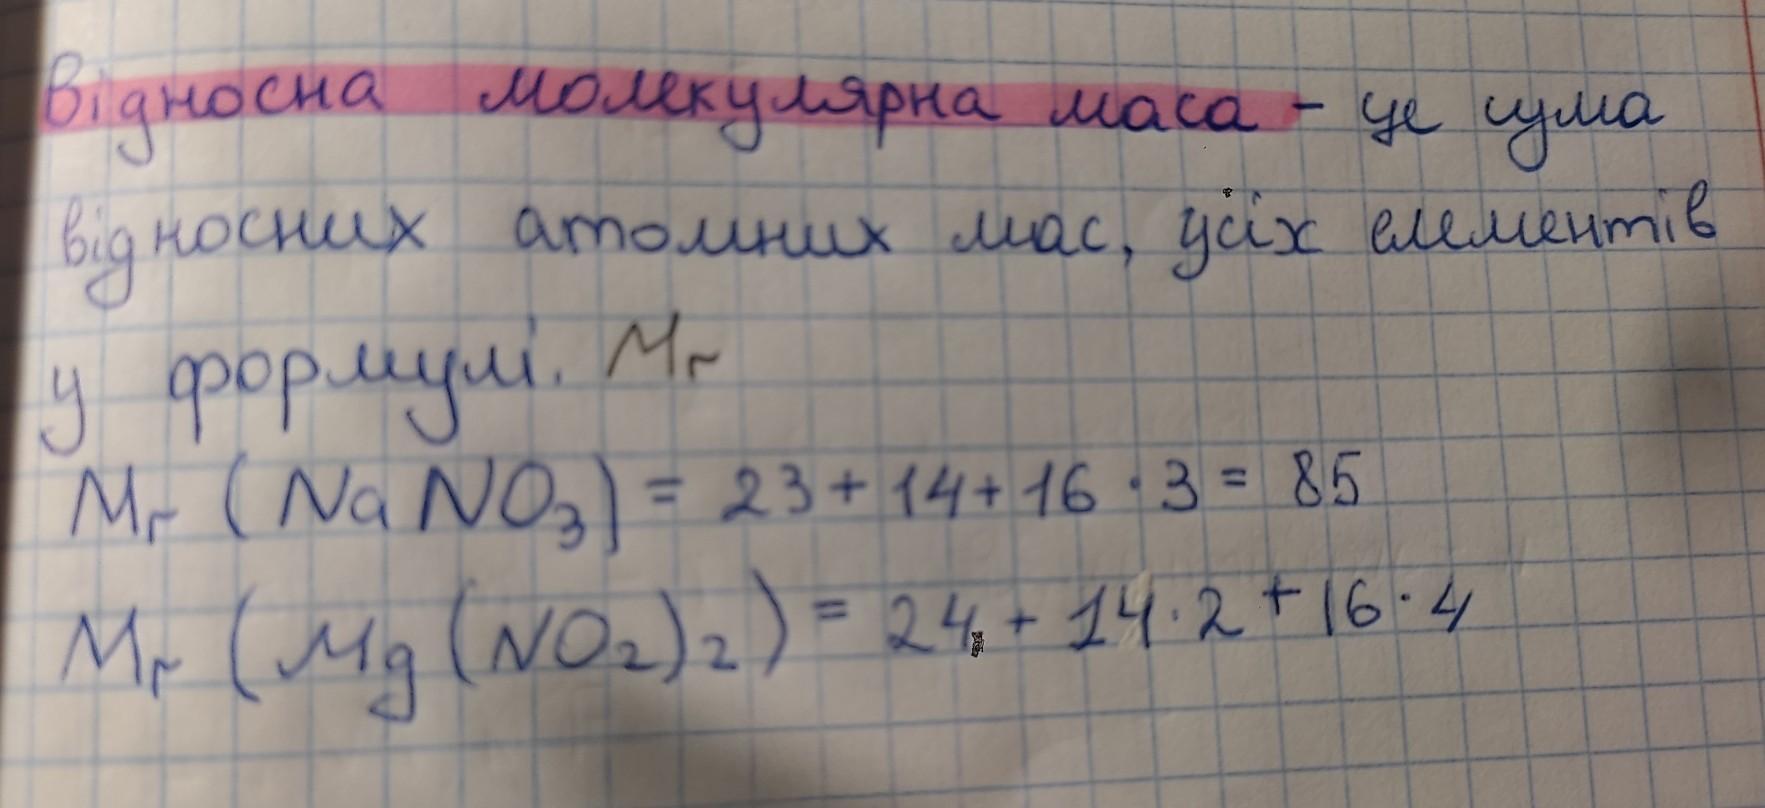 Відносна молекулярна маса - це сума
відносних атомних мас, усіх елементів
у формулі. Mr
Mr (NaNO₃) = 23 + 14 + 16 · 3 = 85
Mr (Mg(NO₂)₂) = 24 + 14 · 2 + 16 · 4